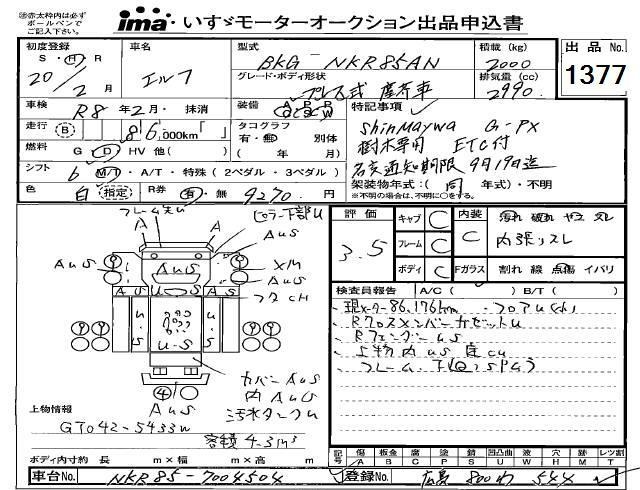 ㊟赤太枠内は必ず
ボールペンで
ご記入下さい。
ima・いすゞモーターオークション出品申込書
初度登録
S・H・R
20年2月
車名
エルフ
型式
BKG-NKR85AN
積載 (kg)
2000
グレード・ボディ形状
プレス式 塵芥車
排気量 (cc)
2990
出品No.
1377
車検
R8年2月・抹消
装備
特記事項
走行
B
86,000km「 」
タコグラフ
有・無 別体
( 年 月)
燃料
G D HV 他( )
シフト
6 M/T・A/T・特殊(2ペダル・3ペダル)
色
白 指定
R券
有・無
9270円
ShinMaywa G-PX
樹木専用 ETC付
名変通知期限 9月19日迄
架装物年式(同年式)・不明
※不明の場合は、不明に○をする。
評価
3.5
キャブ C
フレーム C
ボディ C
内装
C
汚れ 破れ ヤケ スレ
内張りスレ
Fガラス
割れ 線 点傷 イバリ
検査員報告
A/C( ) B/T( )
現メーター86,176km
RクロスメンバーガセットU
RフェンダーUS
フレーム
フレーム
ピラー下部U
A
A
AUS
AUS
AUS
AUS
XM
A U S
U S
U-S
U-S
④
カバーAUS
内AUS
汚水タンクU
AUS
上物情報
GT042-5433W
容積4.3m³
ボディ内寸約 長 m×幅 m×高 m
記号
傷 板金 腐 塗 錆 凹凸曲 波 穴 無 レツ割
A B C P S U W H M T
車台No.
NKR85-7004504
登録No.
広島 800 わ 544